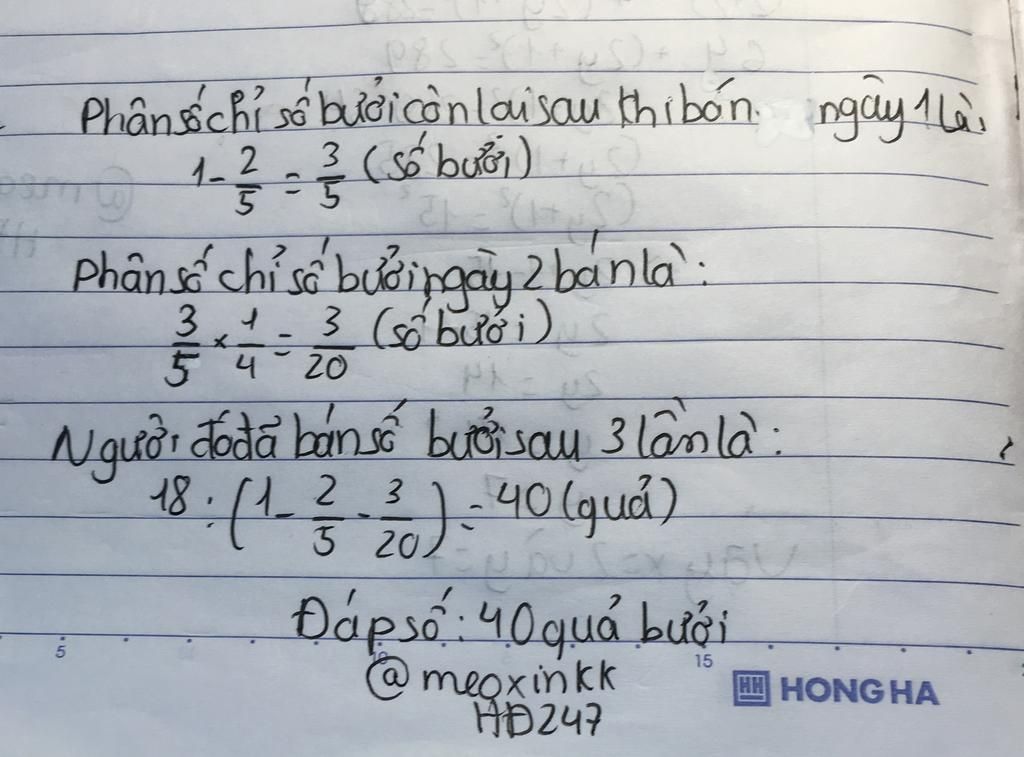 Phân số chỉ số bưởi còn lại sau khi bán ngày 1 là:
1 - 2/5 = 3/5 (số bưởi)
Phân số chỉ số bưởi ngày 2 bán là:
3/5 × 1/4 = 3/20 (số bưởi)
Người đó đã bán số bưởi sau 3 lần là:
18 : (1 - 2/5 - 3/20) = 40 (quả)
Đáp số: 40 quả bưởi
5 10 15
@meoxinkk
HĐ247
HH HONG HA